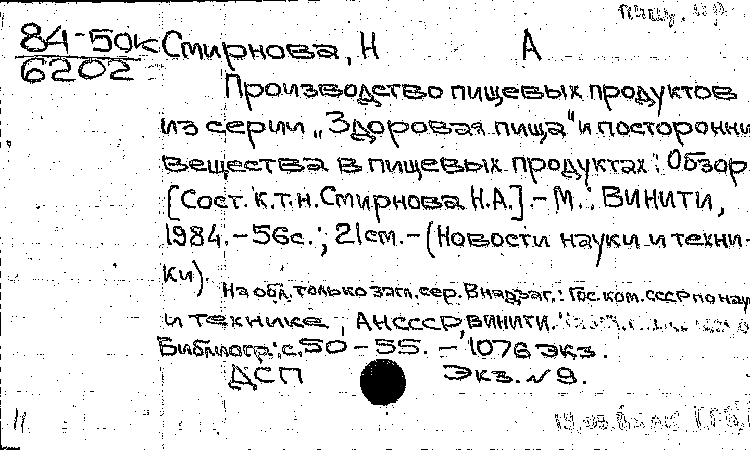 84-50к Смирнова, Н А
6202
Производство пищевых продуктов
из серии „Здоровая пища" и посторонни
вещества в пищевых продуктах: Обзор
[Сост. к.т.н. Смирнова Н.А.].- М.: ВИНИТИ,
1984.-56с.; 21см.-(Новости науки и техни-
ки).
На обл. только загл. сер. В надзаг.: Гос. ком. СССР по нау
и технике, АН СССР, ВИНИТИ.
Библиогр.: с. 50-55. - 1076 экз.
ДСП Экз. №9.